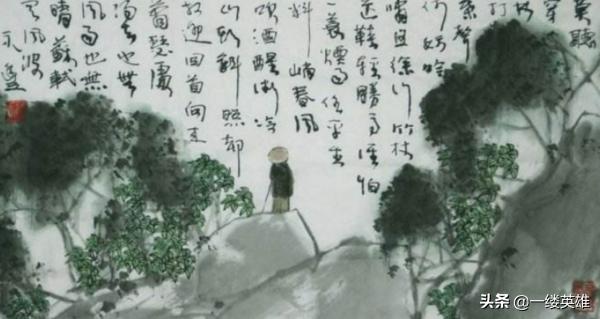 莫聽
穿
打
葉聲
何妨吟
嘯且徐行竹杖
芒鞋輕勝馬誰怕
一蓑煙雨任平生
料峭春風
吹酒醒微冷
山頭斜照卻
相迎回首向来
蕭瑟處
去也無
風雨也無
晴 蘇軾
定風波
头条 @一缕英雄